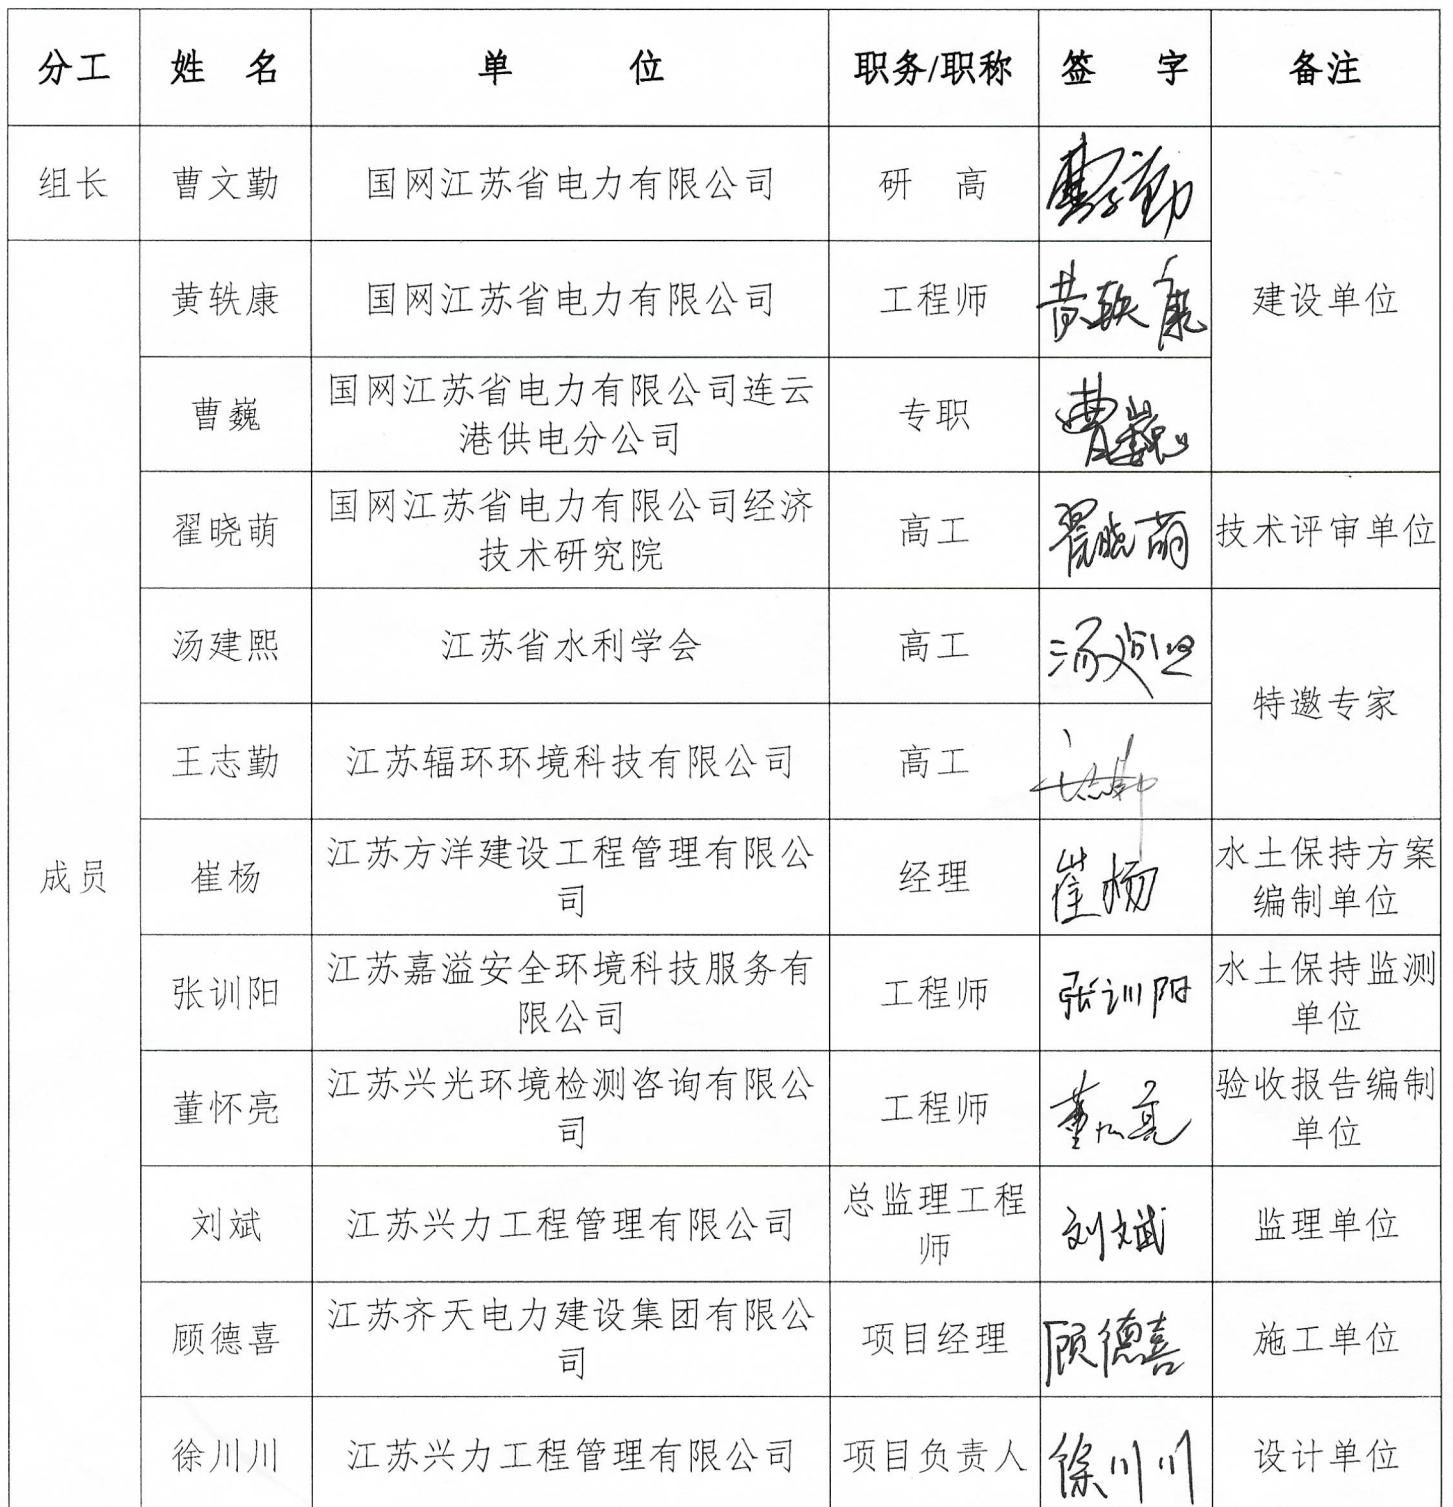 分工 姓 名 单 位 职务/职称 签 字 备注
组长 曹文勤 国网江苏省电力有限公司 研 高 曹文勤
黄轶康 国网江苏省电力有限公司 工程师 黄轶康 建设单位
曹巍 国网江苏省电力有限公司连云
港供电分公司 专职 曹巍
翟晓萌 国网江苏省电力有限公司经济
技术研究院 高工 翟晓萌 技术评审单位
汤建熙 江苏省水利学会 高工 汤建熙
特邀专家
王志勤 江苏辐环环境科技有限公司 高工 王志勤
成员 崔杨 江苏方洋建设工程管理有限公
司 经理 崔杨 水土保持方案
编制单位
张训阳 江苏嘉溢安全环境科技服务有
限公司 工程师 张训阳 水土保持监测
单位
董怀亮 江苏兴光环境检测咨询有限公
司 工程师 董怀亮 验收报告编制
单位
刘斌 江苏兴力工程管理有限公司 总监理工程
师 刘斌 监理单位
顾德喜 江苏齐天电力建设集团有限公
司 项目经理 顾德喜 施工单位
徐川川 江苏兴力工程管理有限公司 项目负责人 徐川川 设计单位